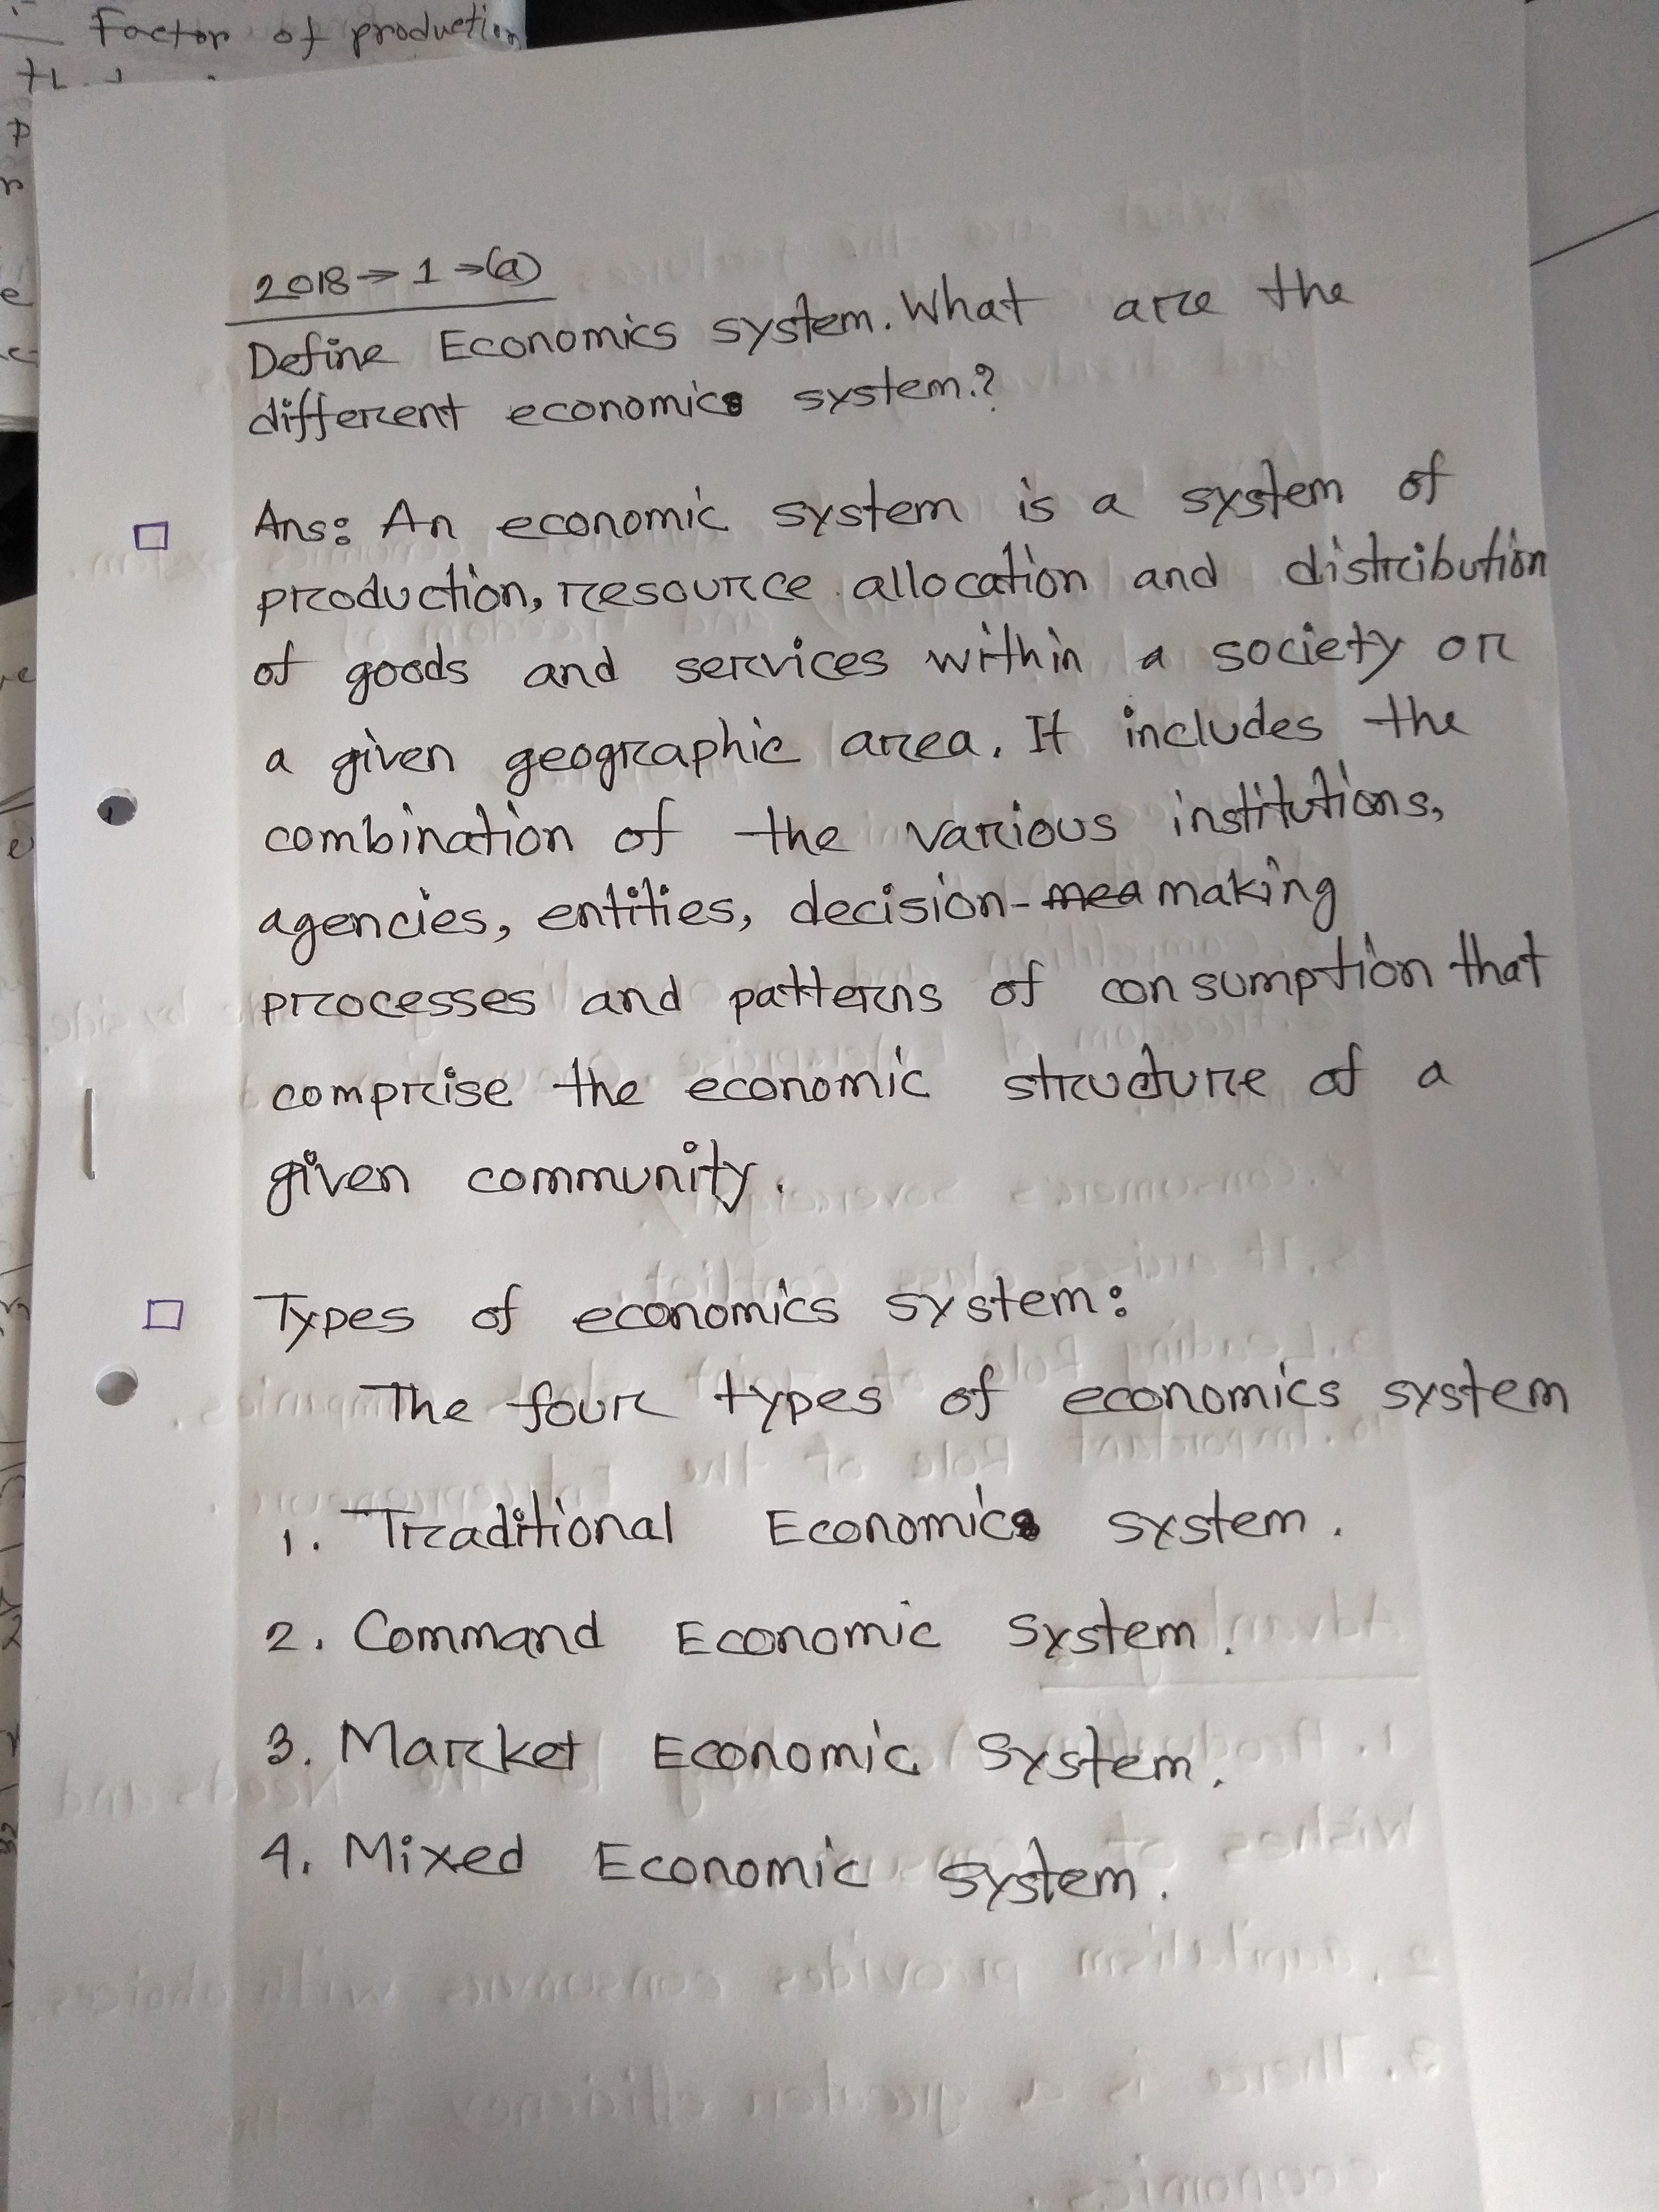 Factor of production
2018 → 1 → (a)
Define Economics system. What are the
different economics system.?
Ans: An economic system is a system of
production, resource allocation and distribution
of goods and services within a society or
a given geographic area. It includes the
combination of the various institutions,
agencies, entities, decision- making
processes and patterns of consumption that
comprise the economic structure of a
given community.
Types of economics system:
The four types of economics system
1. Traditional Economics system.
2. Command Economic System.
3. Market Economic System.
4. Mixed Economic System.